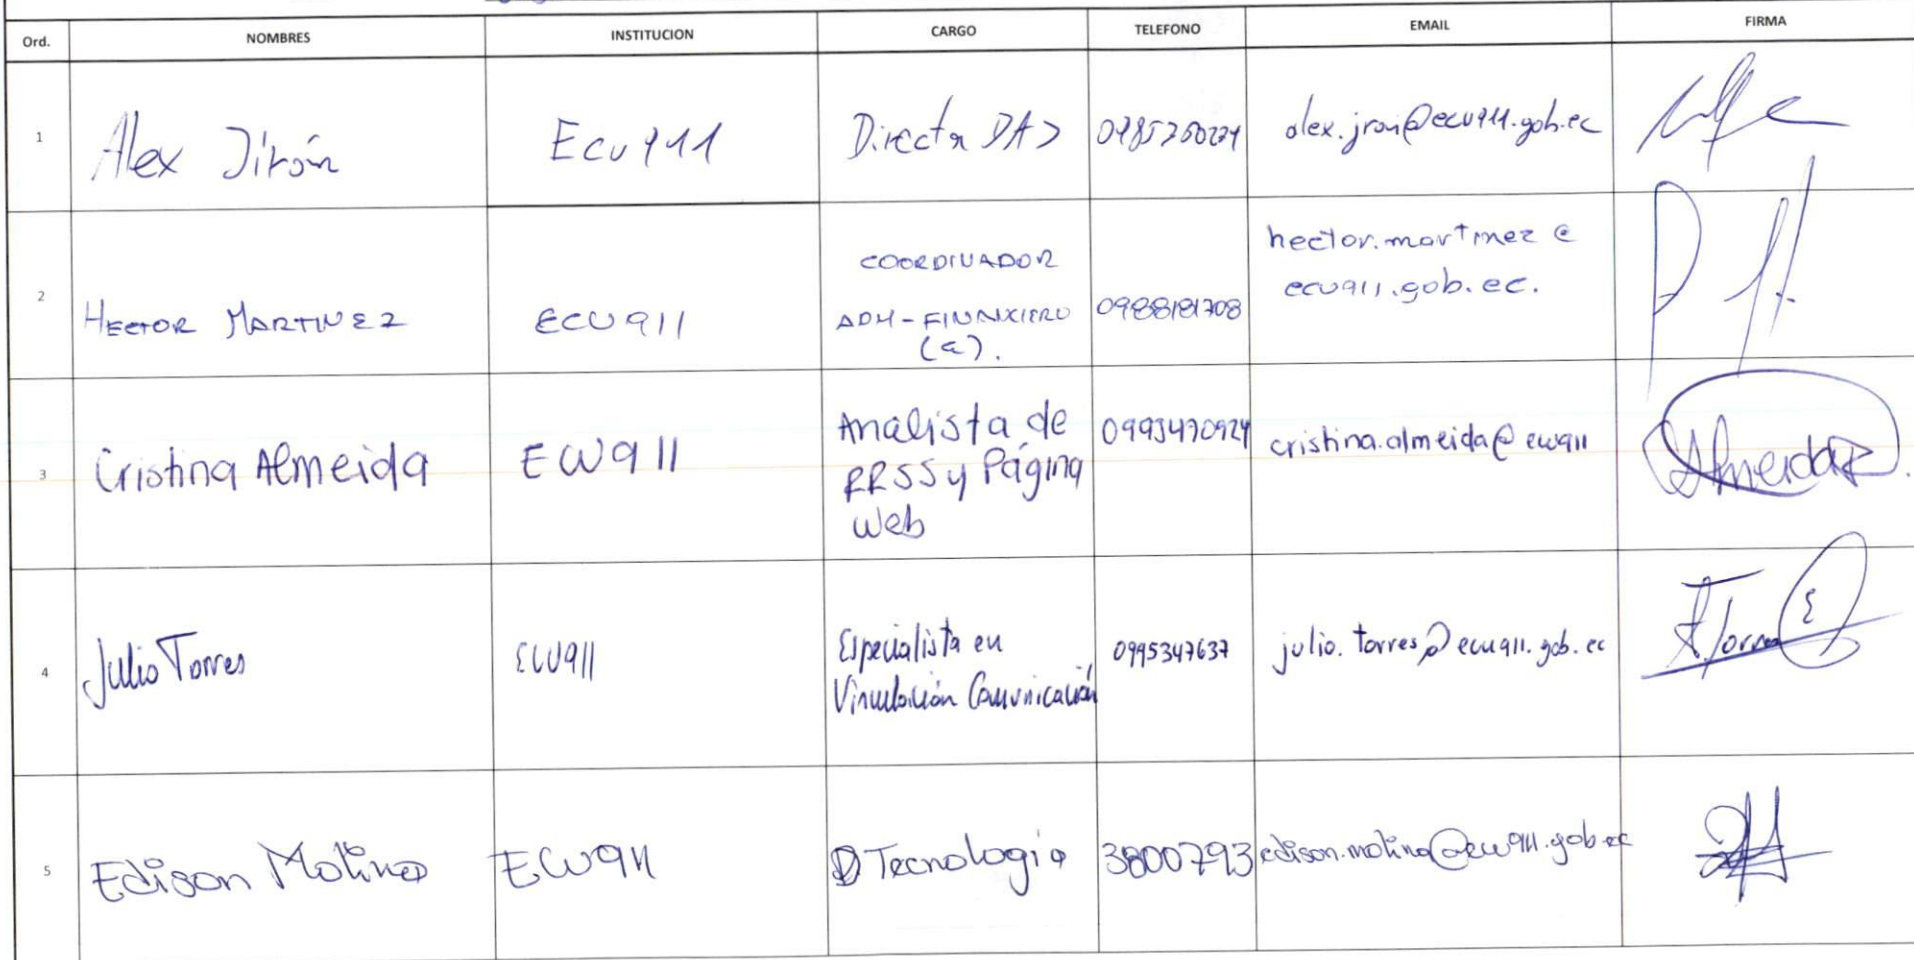 Ord. NOMBRES INSTITUCION CARGO TELEFONO EMAIL FIRMA
1 Alex Jirón Ecu911 Director
2 HECTOR MARTINEZ ECU911 COORDINADOR
ADM-FINANCIERO
(e). 0988181708 hector.martinez@
ecu911.gob.ec.
3 Cristina Almeida ECU911 Analista de
RRSS y Página
Web 0993470924 cristina.almeida@ecu911 Almeida
4 Julio Torres ECU911 Especialista en
Vinculación Comunicación 0995347637 julio.torres@ecu911.gob.ec
5 Edison Molina ECU911 D Tecnología 3800793 edison.molina@ecu911.gob.ec